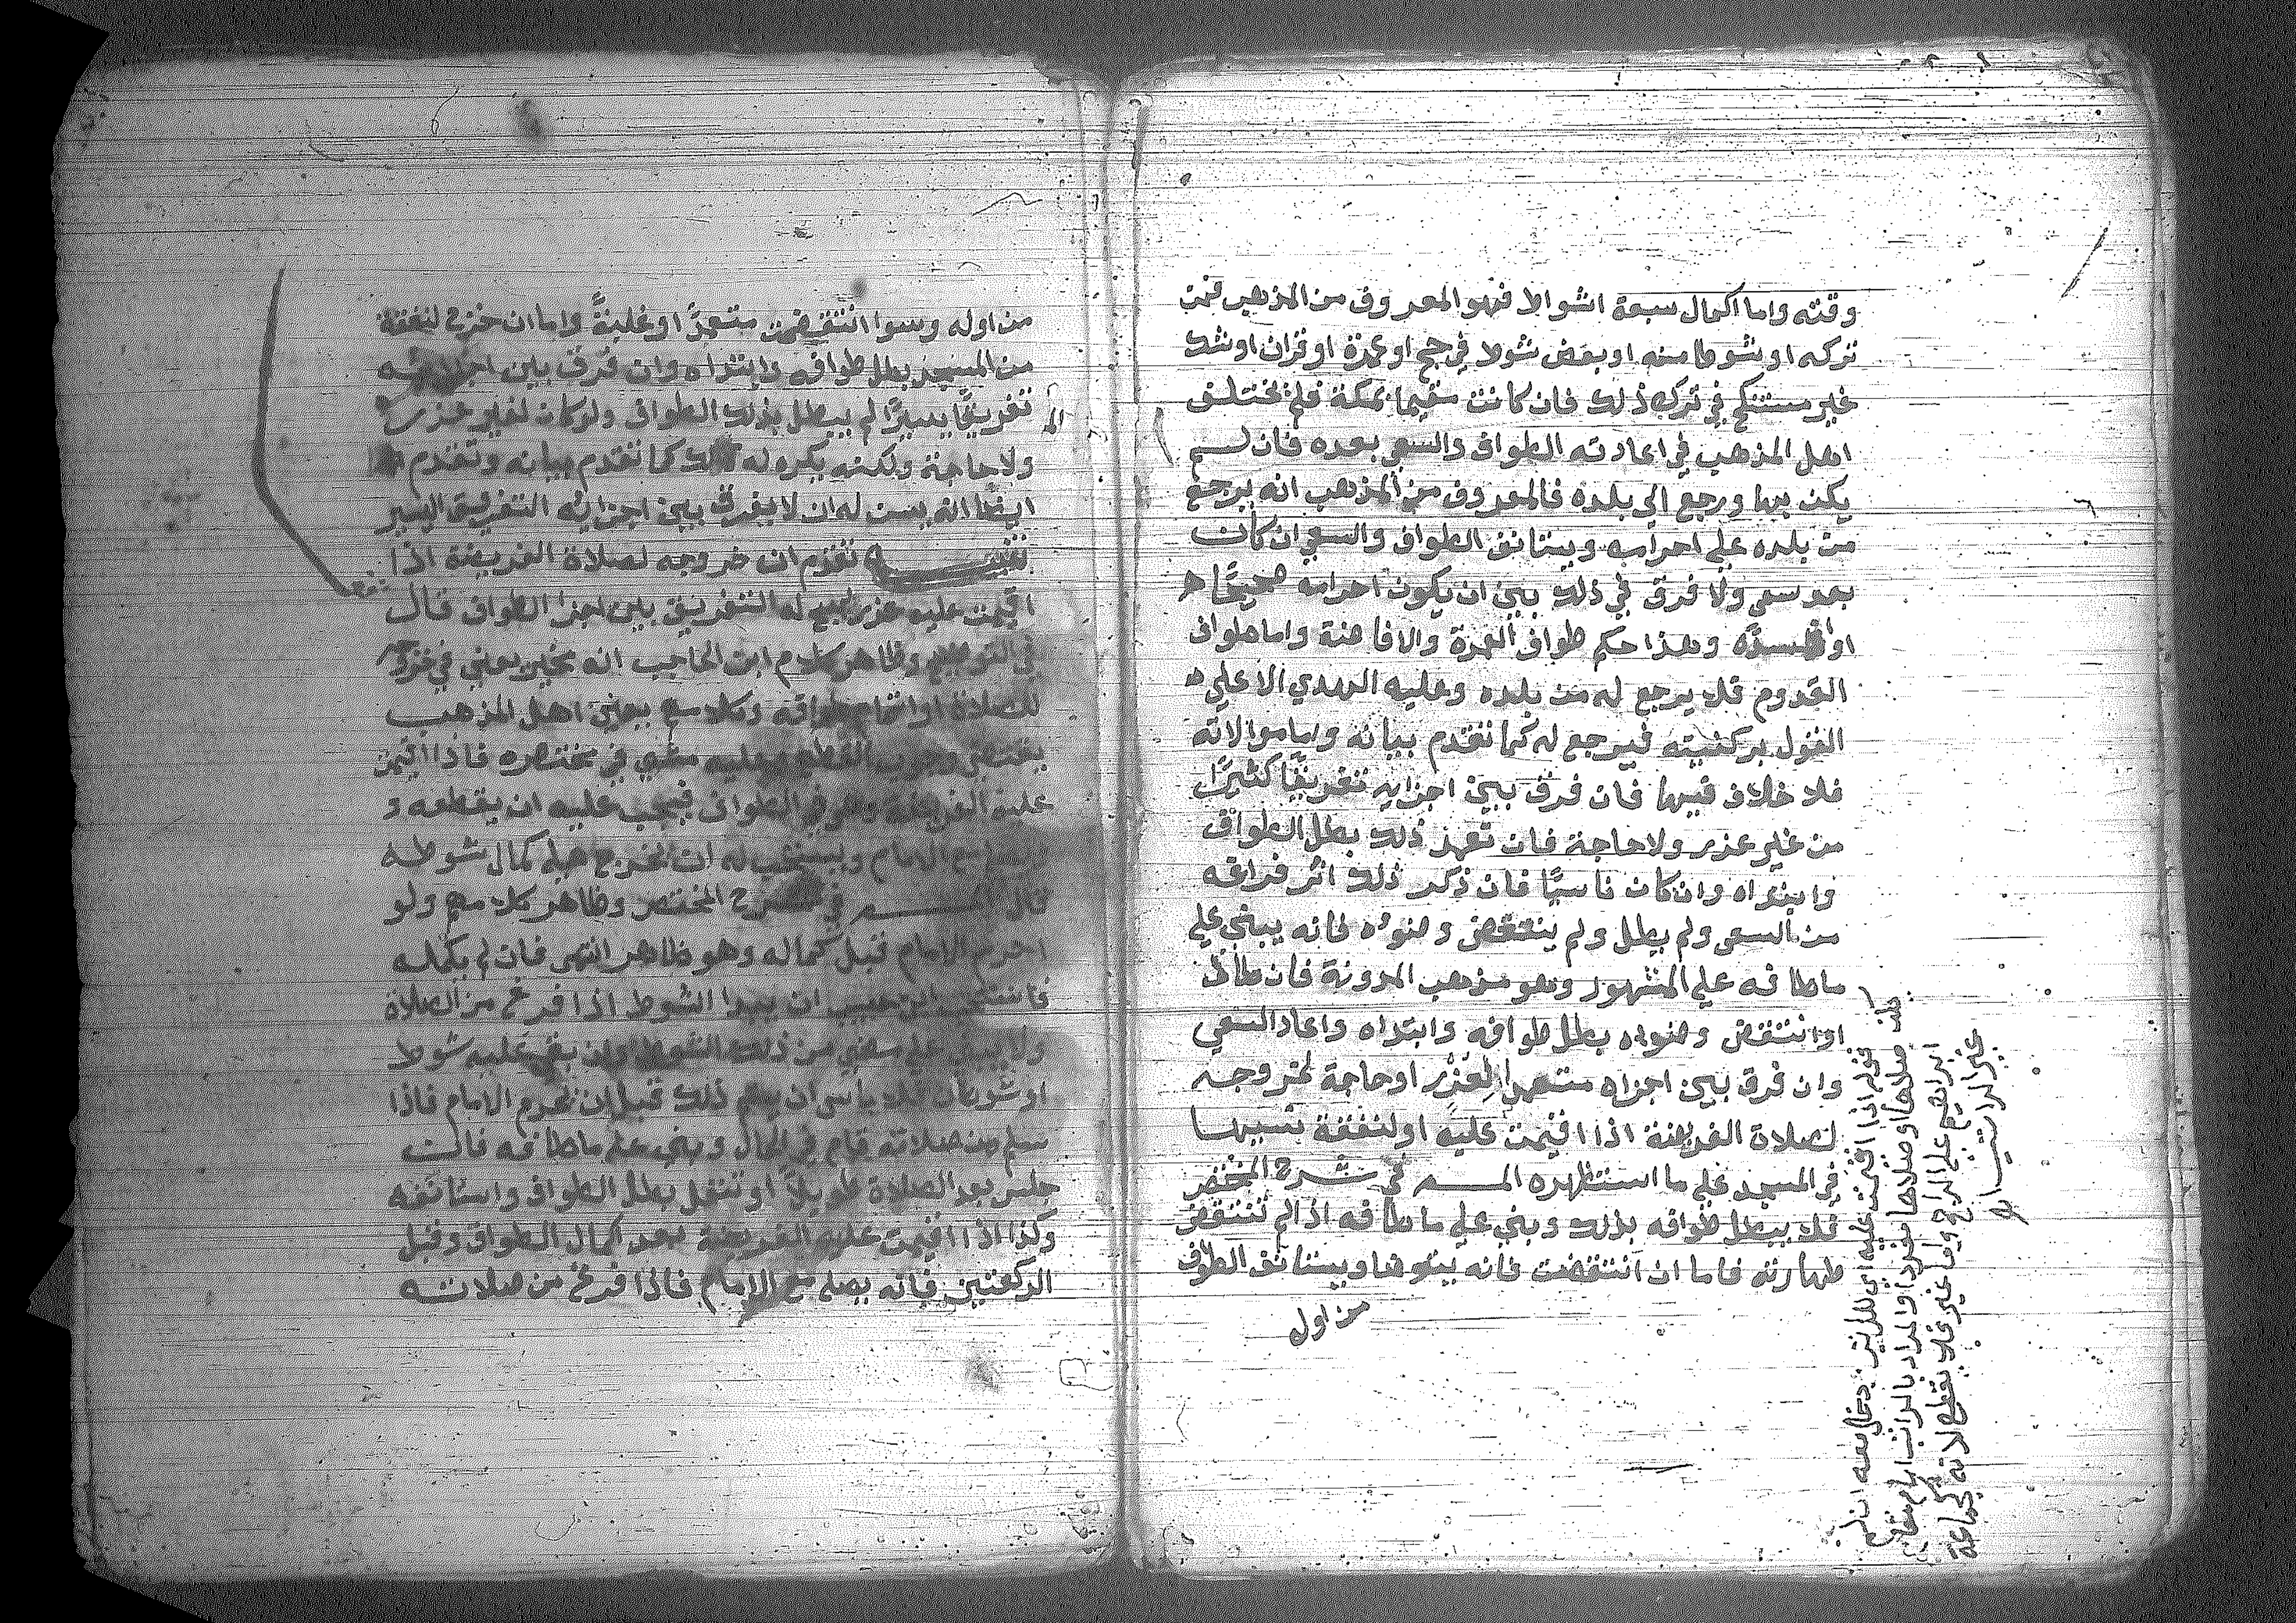 وقته واما اكمال سبعة اشواط فهو المعروف من المذهب فمن
تركه او شوطا منه او بعض شوط في حج او عمرة او قران او شك
غير مستنكح في ترك ذلك فان كانت مقيما بمكة فلم يختلف
اهل المذهب في اعادته الطواف والسعي بعده فان لم
يكن بها ورجع الي بلده فالمعروف من المذهب انه يرجع
من بلده علي احرامه ويستانف الطواف والسعي ان كان
بعد سعي ولا فرق في ذلك بين ان يكون احرامه صحيحًا
او وهذا حكم طواف العمرة والافاضة واما طواف
القدوم فلا يرجع له من بلده وعليه الهدي الا علي
القول بركنيته فيرجع له كما تقدم بيانه واما موالاته
فلا خلاف فيها فان فرق بين اجزايه تفريقًا كثيرًا
من غير عذر ولا حاجة فان تعمد ذلك بطل الطواف
وابتداه وان كان ناسيًا فان ذكر ذلك اثر فراغه
من السعي ولم يطل ولم ينتقض وضوءه فانه يبني علي
ما طافه علي المشهور وهو مذهب المدونة فان طال
او انتقض وضوءه بطل طوافه وابتداه واعاد السعي
وان فرق بين اجزاه متعمدا لعذر او حاجة كخروجه
لصلاة الفريضة اذا اقيمت عليه او لنفقة نسيها
في المسجد علي ما استظهره المـــه في شرح المختصر
فلا يبطل طوافه بذلك ويبني علي ما طافه اذا لم تنتقض
طهارته فاما ان انتقضت فانه يتوضا ويستانف الطواف
من اول
قوله اذا اقيمت عليه اي للراتب دخل معه ان لم
يكن صلاها او صلاها منفردا والمراد بالراتب امام مقام
ابراهيم علي الراجح واما غيره فلا يقطع لانه كجماعة
غير الراتب اهـ
من اوله وسوا انتقضت متعمدًا او غلبةً واما ان خرج لنفقة
من المسجد بطل طوافه وابتداه وان فرق بين اجزائه
تفريقًا يسيرًا لم يبطل بذلك الطواف ولو كان لغير عذر
ولا حاجة ولكنه يكره له ذلك كما تقدم بيانه وتقدم
ايضًا انه يسن له ان لا يفرق بين اجزائه التفريق اليسير
تنبيـــه تقدم ان خروجه لصلاة الفريضة اذا
اقيمت عليه عذر يبيح له التفريق بين اجزا الطواف قال
في التوضيح وظاهر كلام ابن الحاجب انه مخير يعني في خروجه
للصلاة او اتمام طوافه وكلام بعض اهل المذهب
يقتضي وجوب القطع وعليه مشي في مختصره فاذا اقيمت
عليه الفريضة وهو في الطواف فيجب عليه ان يقطعه و
يصلي مع الامام ويستحب له ان يخرج علي كمال شوطه
قال المـــه في شرح المختصر وظاهر كلامهم ولو
احرم الامام قبل كماله وهو ظاهر انتهي فان لم يكمله
فاستحب ابن حبيب ان يبدا الشوط اذا فرغ من الصلاة
ولا من ذلك الشوط وان بقي عليه شوط
او شوطان فلا باس ان يتم ذلك قبل ان يحرم الامام فاذا
سلم من صلاته قام في الحال وبني علي ما طافه فان
جلس بعد الصلاة طويلًا او تنفل بطل الطواف واستانفه
وكذا اذا اقيمت عليه الفريضة بعد كمال الطواف وقبل
الركعتين فانه يصلي مع الامام فاذا فرغ من صلاته